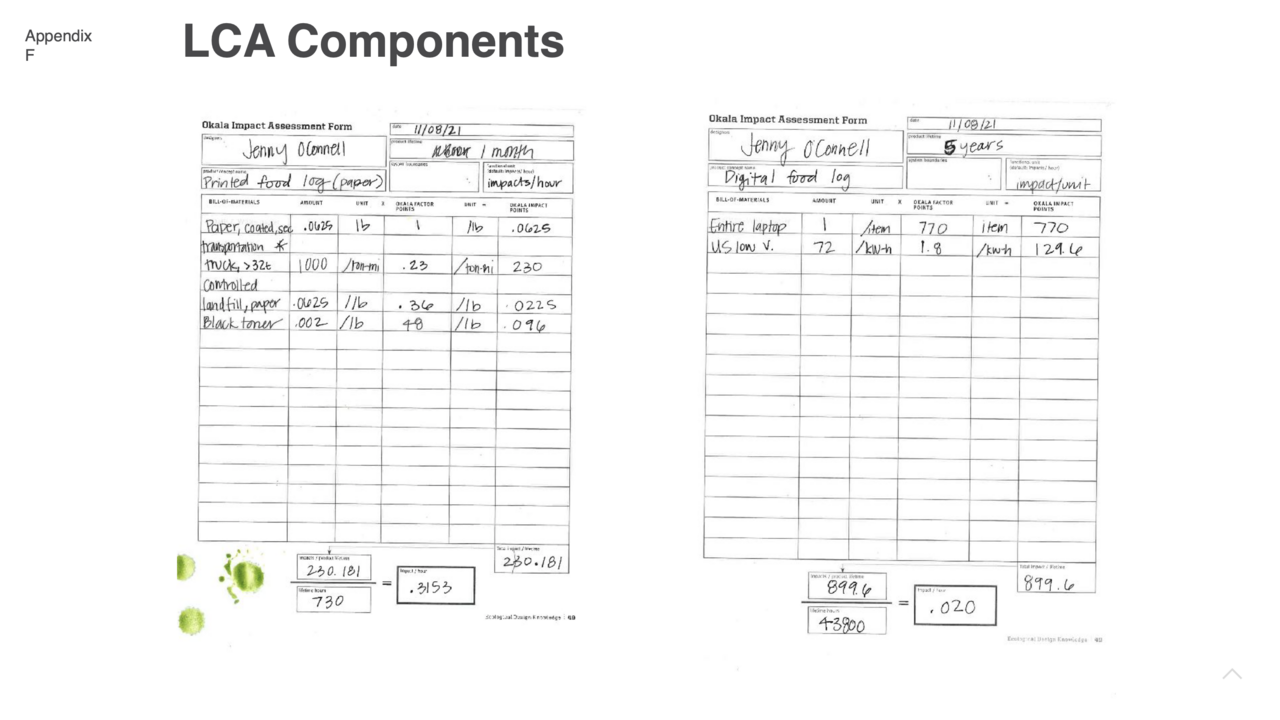 Appendix
F
LCA Components
Okala Impact Assessment Form
date
11/08/21
designer
Jenny O'Connell
product lifetime
1 month
product concept name
Printed food log (paper)
impacts/hour
BILL-OF-MATERIALS AMOUNT UNIT X OKALA FACTOR POINTS UNIT = OKALA IMPACT POINTS
Paper, coated, sec .0625 lb 1 /lb .0625
transportation
truck, >32t 1000 /ton-mi .23 /ton-mi 230
controlled
landfill, paper .0625 /lb .36 /lb .0225
Black toner .002 /lb 48 /lb .096
Total impact / lifetime
230.181
impacts / product lifetime
230.181
=
impact / hour
.3153
lifetime hours
730
Ecological Design Knowledge | 69
Okala Impact Assessment Form
date
11/08/21
designer
Jenny O'Connell
product lifetime
5 years
product concept name
Digital food log
impact/unit
BILL-OF-MATERIALS AMOUNT UNIT X OKALA FACTOR POINTS UNIT = OKALA IMPACT POINTS
Entire laptop 1 /item 770 item 770
US low v. 72 /kw-h 1.8 /kw-h 129.6
Total impact / lifetime
899.6
impacts / product lifetime
899.6
=
impact / hour
.020
lifetime hours
43800
Ecological Design Knowledge